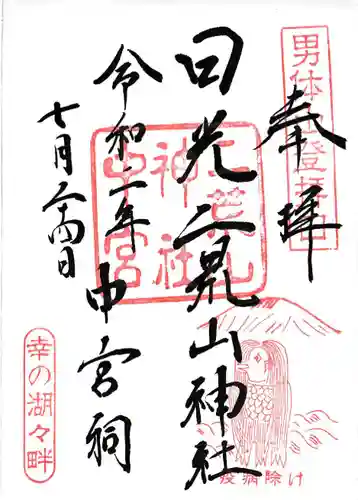 男体山登拝口
奉拝
日光二荒山神社
中宮祠
令和二年
七月二十四日
二荒山
神社
中宮
幸の湖々畔
疫病除け